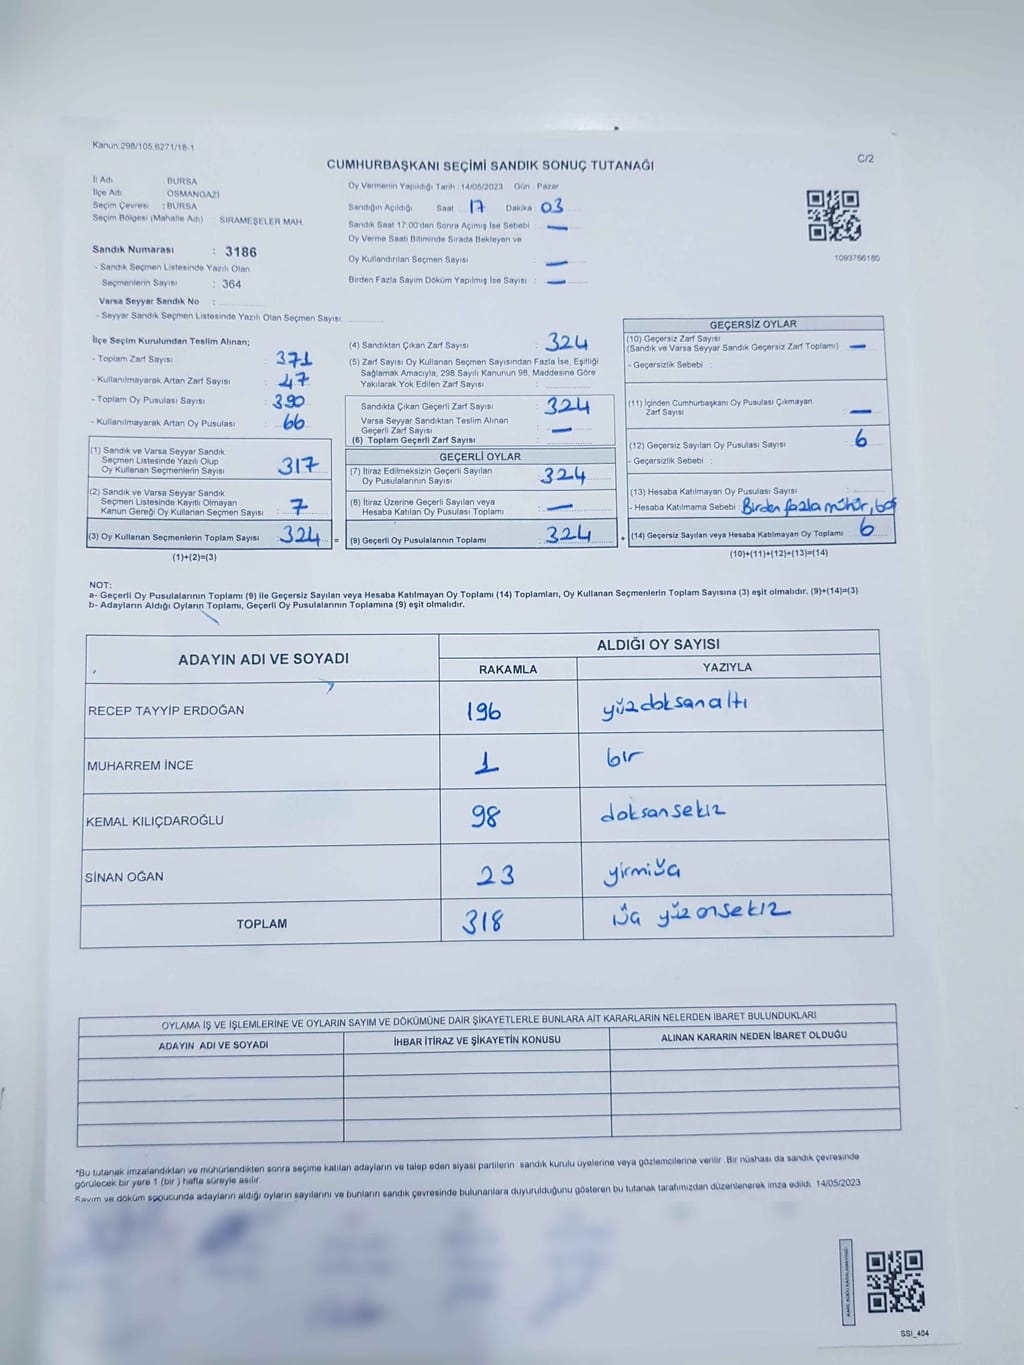 Kanun.298/105,6271/18-1
C/2
CUMHURBAŞKANI SEÇİMİ SANDIK SONUÇ TUTANAĞI
İl Adı : BURSA
İlçe Adı : OSMANGAZİ
Seçim Çevresi : BURSA
Seçim Bölgesi (Mahalle Adı) : SIRAMEŞELER MAH.
Sandık Numarası : 3186
- Sandık Seçmen Listesinde Yazılı Olan
Seçmenlerin Sayısı : 364
Varsa Seyyar Sandık No :
- Seyyar Sandık Seçmen Listesinde Yazılı Olan Seçmen Sayısı:
Oy Vermenin Yapıldığı Tarih : 14/05/2023 Gün : Pazar
Sandığın Açıldığı Saat : 17 Dakika : 03
Sandık Saat 17:00'den Sonra Açılmış İse Sebebi : —
Oy Verme Saati Bitiminde Sırada Bekleyen ve
Oy Kullandırılan Seçmen Sayısı : —
Birden Fazla Sayım Döküm Yapılmış İse Sayısı : —
1093766180
İlçe Seçim Kurulundan Teslim Alınan;
- Toplam Zarf Sayısı : 371
- Kullanılmayarak Artan Zarf Sayısı : 47
- Toplam Oy Pusulası Sayısı : 390
- Kullanılmayarak Artan Oy Pusulası : 66
(1) Sandık ve Varsa Seyyar Sandık
Seçmen Listesinde Yazılı Olup
Oy Kullanan Seçmenlerin Sayısı : 317
(2) Sandık ve Varsa Seyyar Sandık
Seçmen Listesinde Kayıtlı Olmayan
Kanun Gereği Oy Kullanan Seçmen Sayısı : 7
(3) Oy Kullanan Seçmenlerin Toplam Sayısı : 324 =
(1)+(2)=(3)
(4) Sandıktan Çıkan Zarf Sayısı : 324
(5) Zarf Sayısı Oy Kullanan Seçmen Sayısından Fazla İse, Eşitliği
Sağlamak Amacıyla; 298 Sayılı Kanunun 98. Maddesine Göre
Yakılarak Yok Edilen Zarf Sayısı :
Sandıkta Çıkan Geçerli Zarf Sayısı : 324
Varsa Seyyar Sandıktan Teslim Alınan
Geçerli Zarf Sayısı : —
(6) Toplam Geçerli Zarf Sayısı :
GEÇERLİ OYLAR
(7) İtiraz Edilmeksizin Geçerli Sayılan
Oy Pusulalarının Sayısı : 324
(8) İtiraz Üzerine Geçerli Sayılan veya
Hesaba Katılan Oy Pusulası Toplamı : —
(9) Geçerli Oy Pusulalarının Toplamı : 324 +
GEÇERSİZ OYLAR
(10) Geçersiz Zarf Sayısı
(Sandık ve Varsa Seyyar Sandık Geçersiz Zarf Toplamı) : —
- Geçersizlik Sebebi :
(11) İçinden Cumhurbaşkanı Oy Pusulası Çıkmayan
Zarf Sayısı : —
(12) Geçersiz Sayılan Oy Pusulası Sayısı : 6
- Geçersizlik Sebebi :
(13) Hesaba Katılmayan Oy Pusulası Sayısı :
- Hesaba Katılmama Sebebi : Birden fazla mühür, boş
(14) Geçersiz Sayılan veya Hesaba Katılmayan Oy Toplamı : 6
(10)+(11)+(12)+(13)=(14)
NOT:
a- Geçerli Oy Pusulalarının Toplamı (9) ile Geçersiz Sayılan veya Hesaba Katılmayan Oy Toplamı (14) Toplamları, Oy Kullanan Seçmenlerin Toplam Sayısına (3) eşit olmalıdır. (9)+(14)=(3)
b- Adayların Aldığı Oyların Toplamı, Geçerli Oy Pusulalarının Toplamına (9) eşit olmalıdır.
ADAYIN ADI VE SOYADI
ALDIĞI OY SAYISI
RAKAMLA YAZIYLA
RECEP TAYYİP ERDOĞAN 196 yüzdoksanaltı
MUHARREM İNCE 1 bir
KEMAL KILIÇDAROĞLU 98 doksansekiz
SİNAN OĞAN 23 yirmiüç
TOPLAM 318 üç yüzonsekiz
OYLAMA İŞ VE İŞLEMLERİNE VE OYLARIN SAYIM VE DÖKÜMÜNE DAİR ŞİKAYETLERLE BUNLARA AİT KARARLARIN NELERDEN İBARET BULUNDUKLARI
ADAYIN ADI VE SOYADI İHBAR İTİRAZ VE ŞİKAYETİN KONUSU ALINAN KARARIN NEDEN İBARET OLDUĞU
*Bu tutanak imzalandıktan ve mühürlendikten sonra seçime katılan adayların ve talep eden siyasi partilerin sandık kurulu üyelerine veya gözlemcilerine verilir. Bir nüshası da sandık çevresinde
görülecek bir yere 1 (bir ) hafta süreyle asılır.
Sayım ve döküm sonucunda adayların aldığı oyların sayılarını ve bunların sandık çevresinde bulunanlara duyurulduğunu gösteren bu tutanak tarafımızdan düzenlenerek imza edildi. 14/05/2023
SSI_404